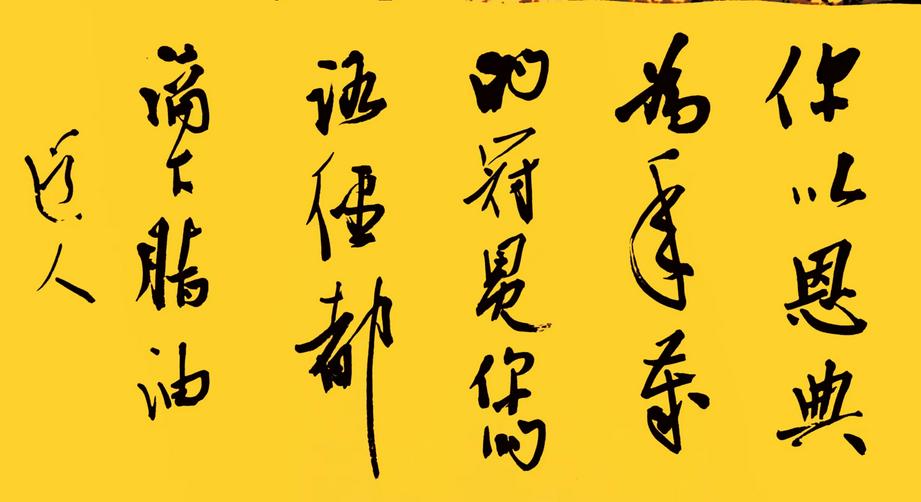 你以恩典
為年歲
的冠冕你的
路徑都
滴下脂油
人